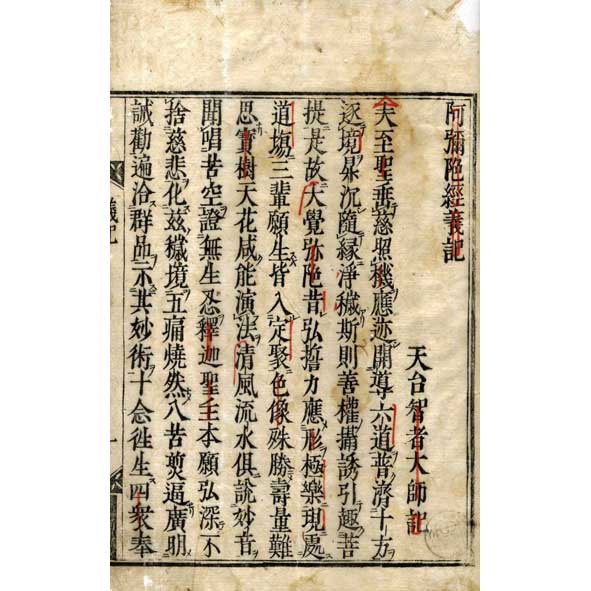 阿彌陀經義記
天台智者大師記
夫至聖垂慈照機應迹開導六道普濟十方
逐境昇沉隨緣淨穢斯則善權攝誘引趣菩
提是故大覺弥陀昔弘誓力應形極樂現處
道塲三輩願生皆入定聚色像殊勝壽量難
思寳樹天花咸能演法清風流水俱說妙音
聞唱苦空證無生忍釋迦聖主本願弘深不
捨慈悲化兹穢境五痛燒然八苦煎逼廣明
誠勸遍洽群品示其妙術十念徃生四衆奉
義記